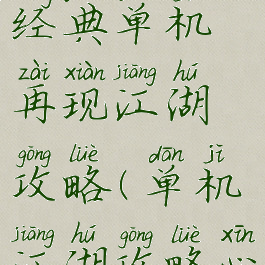 经典单机
zài xiàn jiāng hú
再现江湖
gōng lüè dān jī
攻略(单机
jiāng hú gōng lüè xīn
江湖攻略心